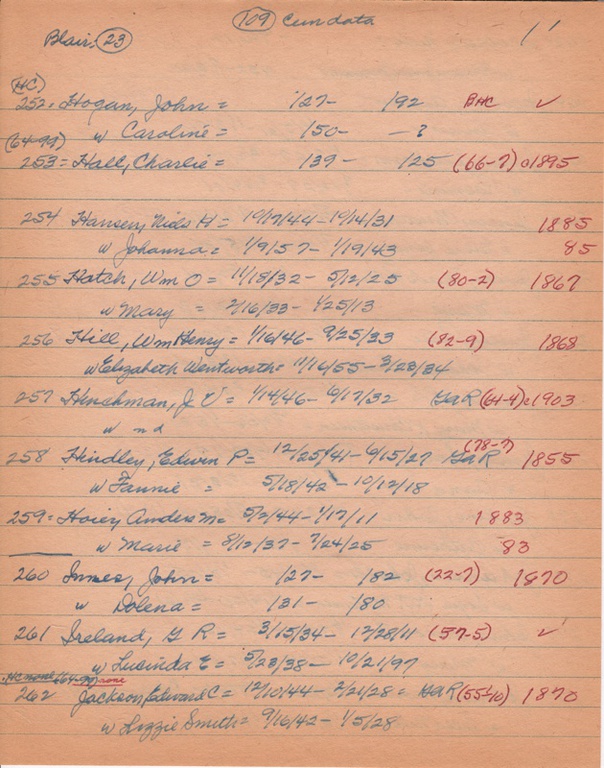 (109) Cem data
Blair. (23) 11
(HC)
252. Hogan, John = /27- /92 BHC ✓
w Caroline = /50- -?
(64-99)
253 = Hall, Charlie = /39 - /25 (66-7) a1895
254 Hansen, Niels H = 10/17/44 - 10/14/31 1885
w Johanna = 1/9/57 - 1/19/43 85
255 Hatch, Wm O = 11/18/32 - 5/12/25 (80-2) 1867
w Mary = 2/16/33 - 1/25/13
256 Hill, Wm Henry = 1/16/46 - 9/25/33 (82-9) 1868
w Elizabeth Wentworth = 11/16/55 - 3/23/34
257 Henchman, J V = 1/14/46 - 6/17/32 GAR (64-4) c1903
w nd
258 Hindley, Edwin P = 12/25/41 - 6/15/27 GAR (78-7) 1855
w Fannie = 5/18/42 - 10/12/18
259 = Hoier, Anders M = 5/2/44 - 1/17/11 1883
w Marie = 8/12/37 - 7/24/25 83
260 Innes, John = /27 - /82 (22-7) 1870
w Dolena = /31 - /80
261 Ireland, G R = 3/15/34 - 12/28/11 (57-5) ✓
w Lucinda E = 5/23/38 - 10/21/97
HC none (64-99) none
262 Jackson, Edward C = 12/10/44 - 2/21/28 = GAR (55-10) 1870
w Lizzie Smith = 9/16/42 - 1/5/28